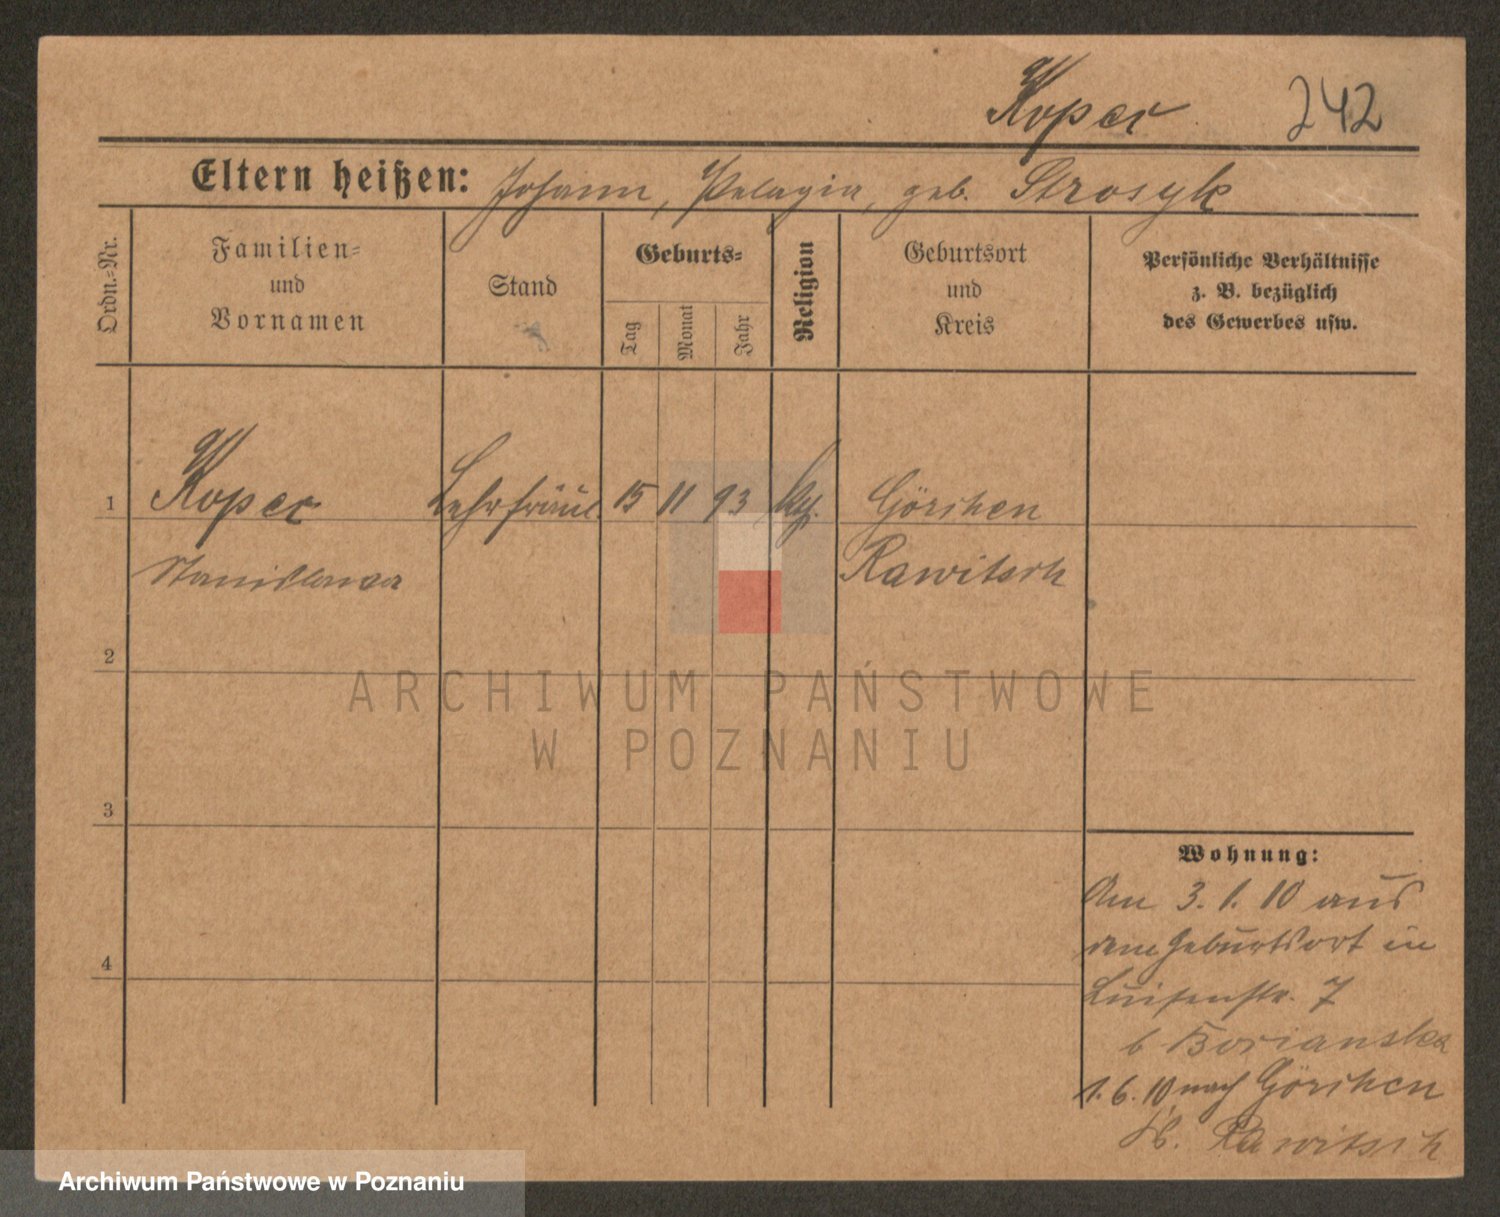 Koper
242
Eltern heißen: Johann, Pelagia, geb. Strosyk
Ordn.-Nr.
Familien-
und
Vornamen
Stand
Geburts-
Tag
Monat
Jahr
Religion
Geburtsort
und
Kreis
Persönliche Verhältnisse
z. B. bezüglich
des Gewerbes usw.
1
Koper Lehrfräul. 15 11 93 kth. Görchen
Stanislawa Rawitsch
2
ARCHIWUM PAŃSTWOWE
W POZNANIU
3
Wohnung:
Am 3. 1. 10 aus
dem Geburtsort in
4
Luisenstr. 7
b Borianska
1. 6. 10 nach Görchen
Kr. Rawitsch
Archiwum Państwowe w Poznaniu